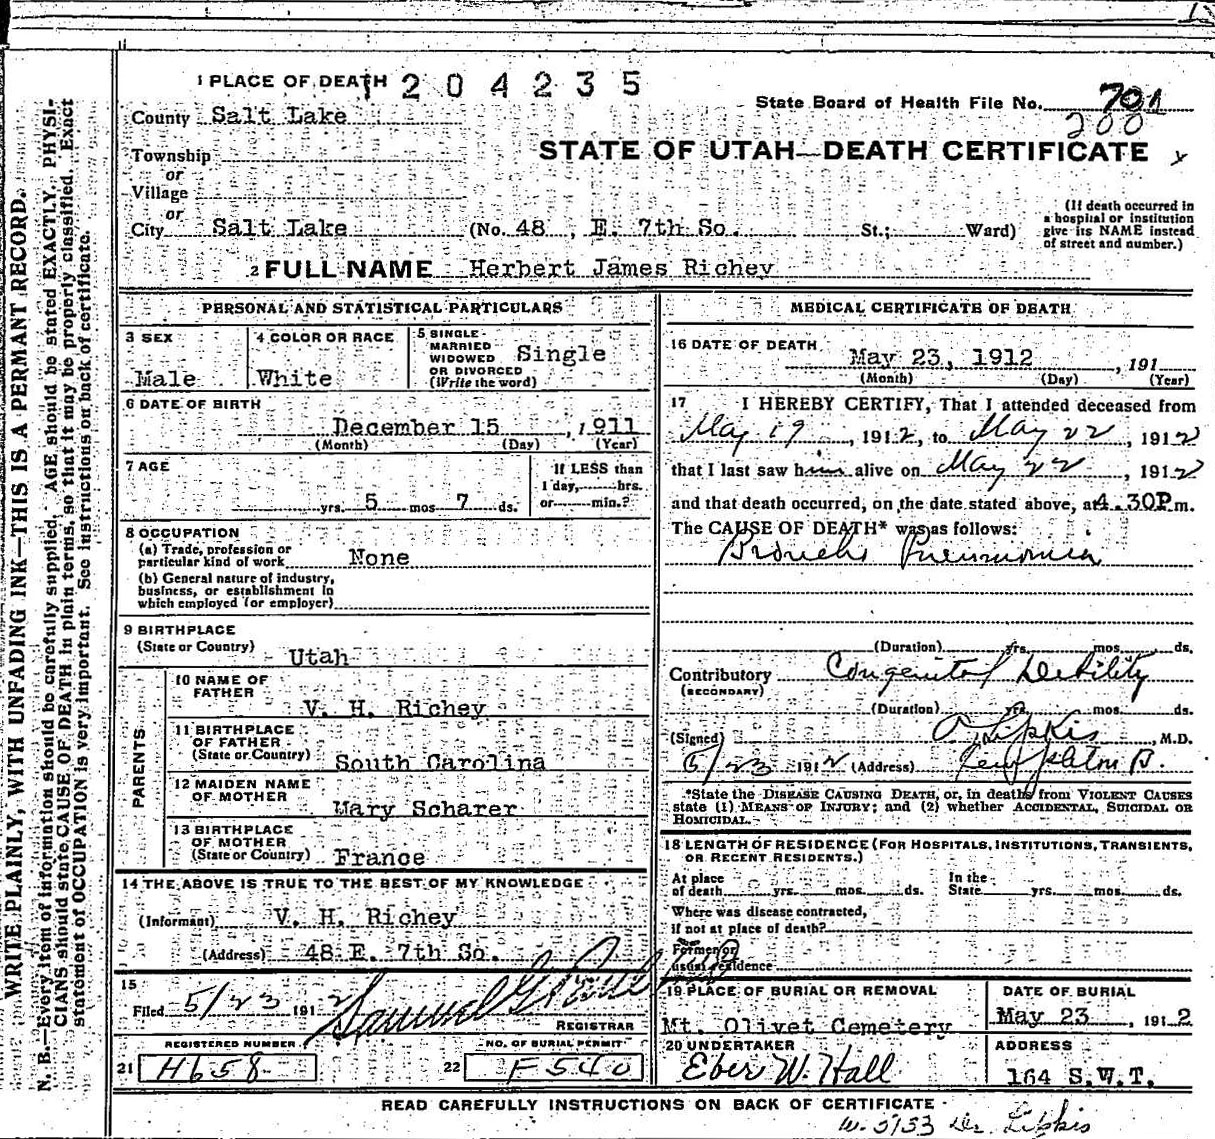 1 PLACE OF DEATH 204235
State Board of Health File No. 701
200
County Salt Lake
STATE OF UTAH—DEATH CERTIFICATE
Township
or
Village
or
City Salt Lake (No. 48, E. 7th So. St.; Ward)
(If death occurred in a hospital or institution give its NAME instead of street and number.)
2 FULL NAME Herbert James Richey
PERSONAL AND STATISTICAL PARTICULARS
3 SEX
Male
4 COLOR OR RACE
White
5 SINGLE-
MARRIED
WIDOWED
OR DIVORCED
(Write the word)
Single
6 DATE OF BIRTH
December 15, 1911
(Month) (Day) (Year)
7 AGE
yrs. 5 mos 7 ds.
If LESS than
1 day, hrs.
or min.?
8 OCCUPATION
(a) Trade, profession or
particular kind of work None
(b) General nature of industry,
business, or establishment in
which employed (or employer)
9 BIRTHPLACE
(State or Country) Utah
PARENTS
10 NAME OF
FATHER
V. H. Richey
11 BIRTHPLACE
OF FATHER
(State or Country) South Carolina
12 MAIDEN NAME
OF MOTHER
Mary Scharer
13 BIRTHPLACE
OF MOTHER
(State or Country) France
14 THE ABOVE IS TRUE TO THE BEST OF MY KNOWLEDGE
(Informant) V. H. Richey
(Address) 48 E. 7th So.
15
Filed 5/23 1912 Samuel G. Paul
REGISTRAR
REGISTERED NUMBER
21 H658
NO. OF BURIAL PERMIT
22 F540
MEDICAL CERTIFICATE OF DEATH
16 DATE OF DEATH
May 23, 1912, 191
(Month) (Day) (Year)
17 I HEREBY CERTIFY, That I attended deceased from
May 19, 1912, to May 22, 1912
that I last saw him alive on May 22, 1912
and that death occurred, on the date stated above, at 4.30P.m.
The CAUSE OF DEATH* was as follows:
Broncho Pneumonia
(Duration) yrs. mos. ds.
Contributory Congenital Debility
(SECONDARY)
(Duration) yrs. mos. ds.
(Signed) O Lipkis, M.D.
5/23 1912 (Address)
*State the DISEASE CAUSING DEATH, or, in deaths from VIOLENT CAUSES
state (1) MEANS OF INJURY; and (2) whether ACCIDENTAL, SUICIDAL OR
HOMICIDAL.
18 LENGTH OF RESIDENCE (FOR HOSPITALS, INSTITUTIONS, TRANSIENTS,
OR RECENT RESIDENTS.)
At place
of death yrs. mos. ds.
In the
State yrs. mos. ds.
Where was disease contracted,
if not at place of death?
Former or
usual residence
19 PLACE OF BURIAL OR REMOVAL
Mt. Olivet Cemetery
DATE OF BURIAL
May 23, 1912
20 UNDERTAKER
Eber W. Hall
ADDRESS
164 S.W.T.
READ CAREFULLY INSTRUCTIONS ON BACK OF CERTIFICATE
W. 5133 Dr. Lipkis
WRITE PLAINLY, WITH UNFADING INK—THIS IS A PERMANT RECORD.
N. B.—Every item of information should be carefully supplied. AGE should be stated EXACTLY. PHYSI-
CIANS should state CAUSE OF DEATH in plain terms, so that it may be properly classified. Exact
statement of OCCUPATION is very important. See instructions on back of certificate.